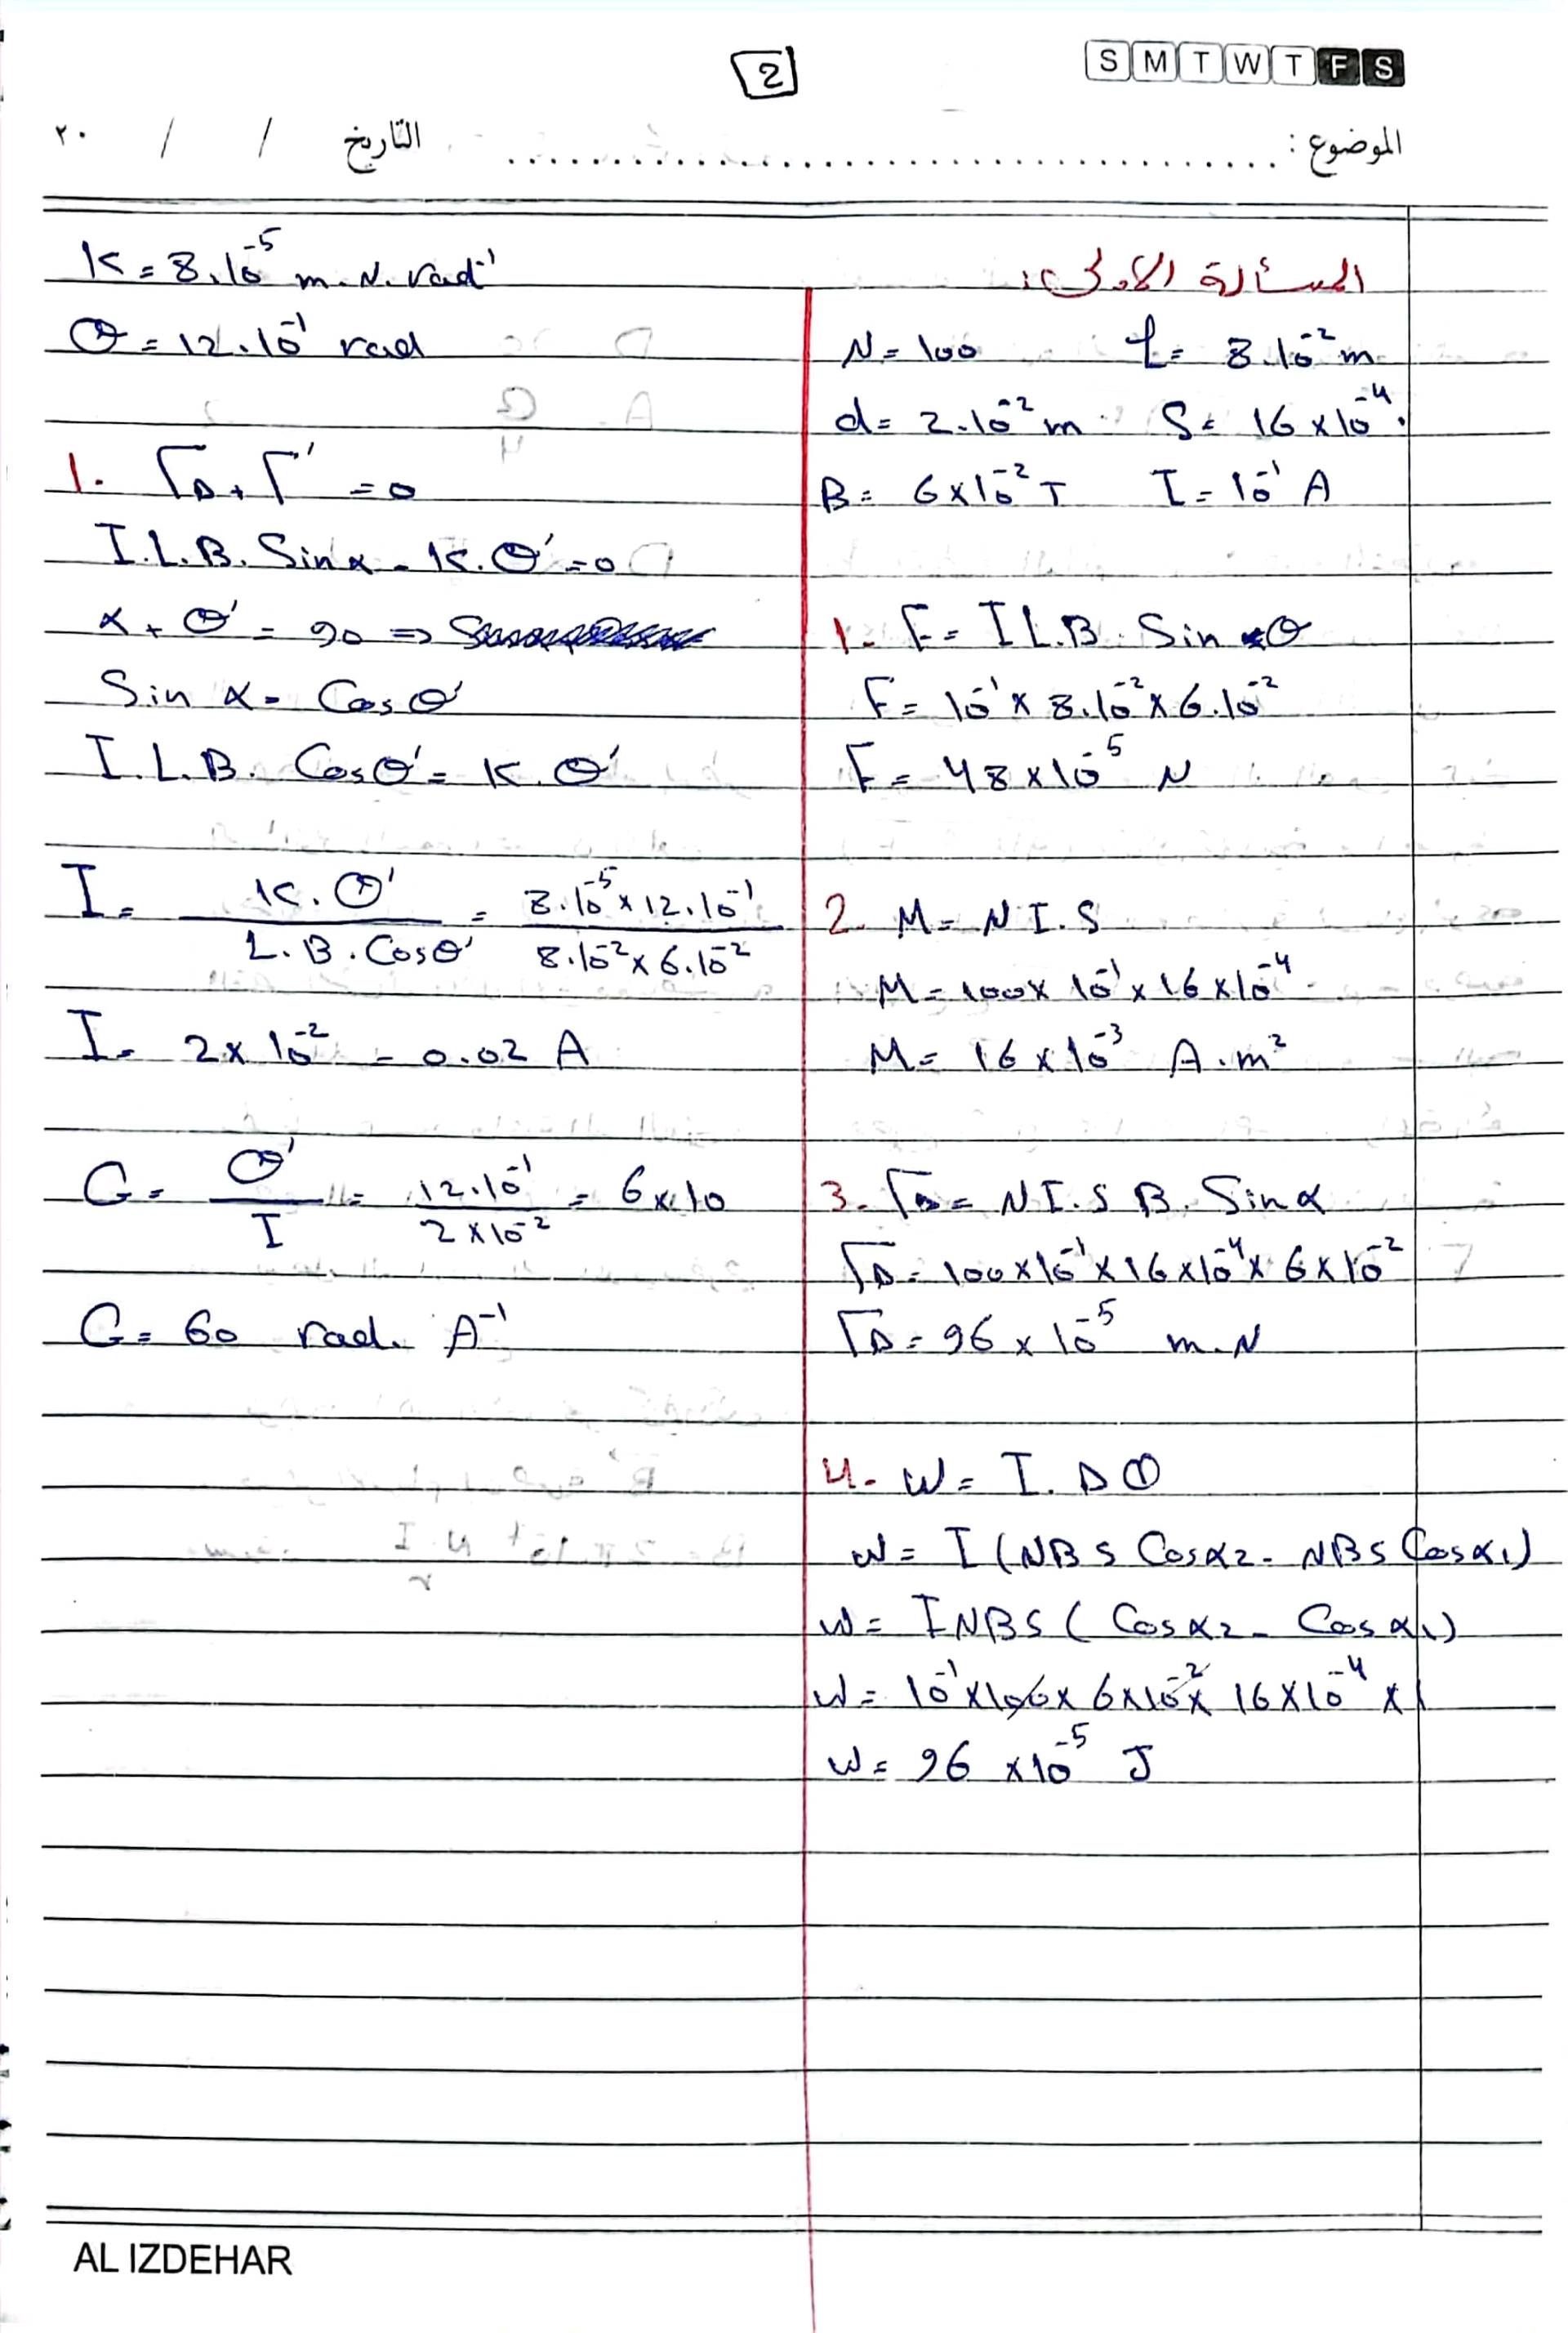 2
S M T W T F S
الموضوع : ........................................ التاريخ / / ٢٠
المسألة الأولى:
N= 100 L= 8.10⁻² m
d= 2.10⁻² m S= 16 x10⁻⁴
B= 6x10⁻² T I= 10⁻¹ A
1. F= I L.B. Sin θ
F= 10⁻¹ x 8.10⁻² x 6.10⁻²
F= 48 x10⁻⁵ N
2. M= N I. S
M= 100x 10⁻¹ x 16 x10⁻⁴
M= 16 x 10⁻³ A.m²
3. ΓΔ= N I. S B. Sin α
ΓΔ= 100x10⁻¹ x 16 x10⁻⁴ x 6 x 10⁻²
ΓΔ= 96 x 10⁻⁵ m.N
4. W= I. Δ Φ
W= I (NB S Cos α2 - NBS Cos α1)
W= INBS ( Cos α2 - Cos α1)
W= 10⁻¹ x100x 6x10⁻² x 16x10⁻⁴ x 1
W= 96 x10⁻⁵ J
K= 8.10⁻⁵ m.N.rad⁻¹
θ'= 12.10⁻¹ rad
1. ΓΔ + Γ' = 0
I.L.B. Sin α - K.θ' = 0
α + θ' = 90 ⇒
Sin α = Cos θ'
I.L.B. Cos θ' = K.θ'
I= K.θ' / L.B.Cos θ' = 8.10⁻⁵ x 12.10⁻¹ / 8.10⁻² x 6.10⁻²
I= 2x 10⁻² = 0.02 A
G= θ' / I = 12.10⁻¹ / 2 x10⁻² = 6x10
G= 60 rad. A⁻¹
AL IZDEHAR